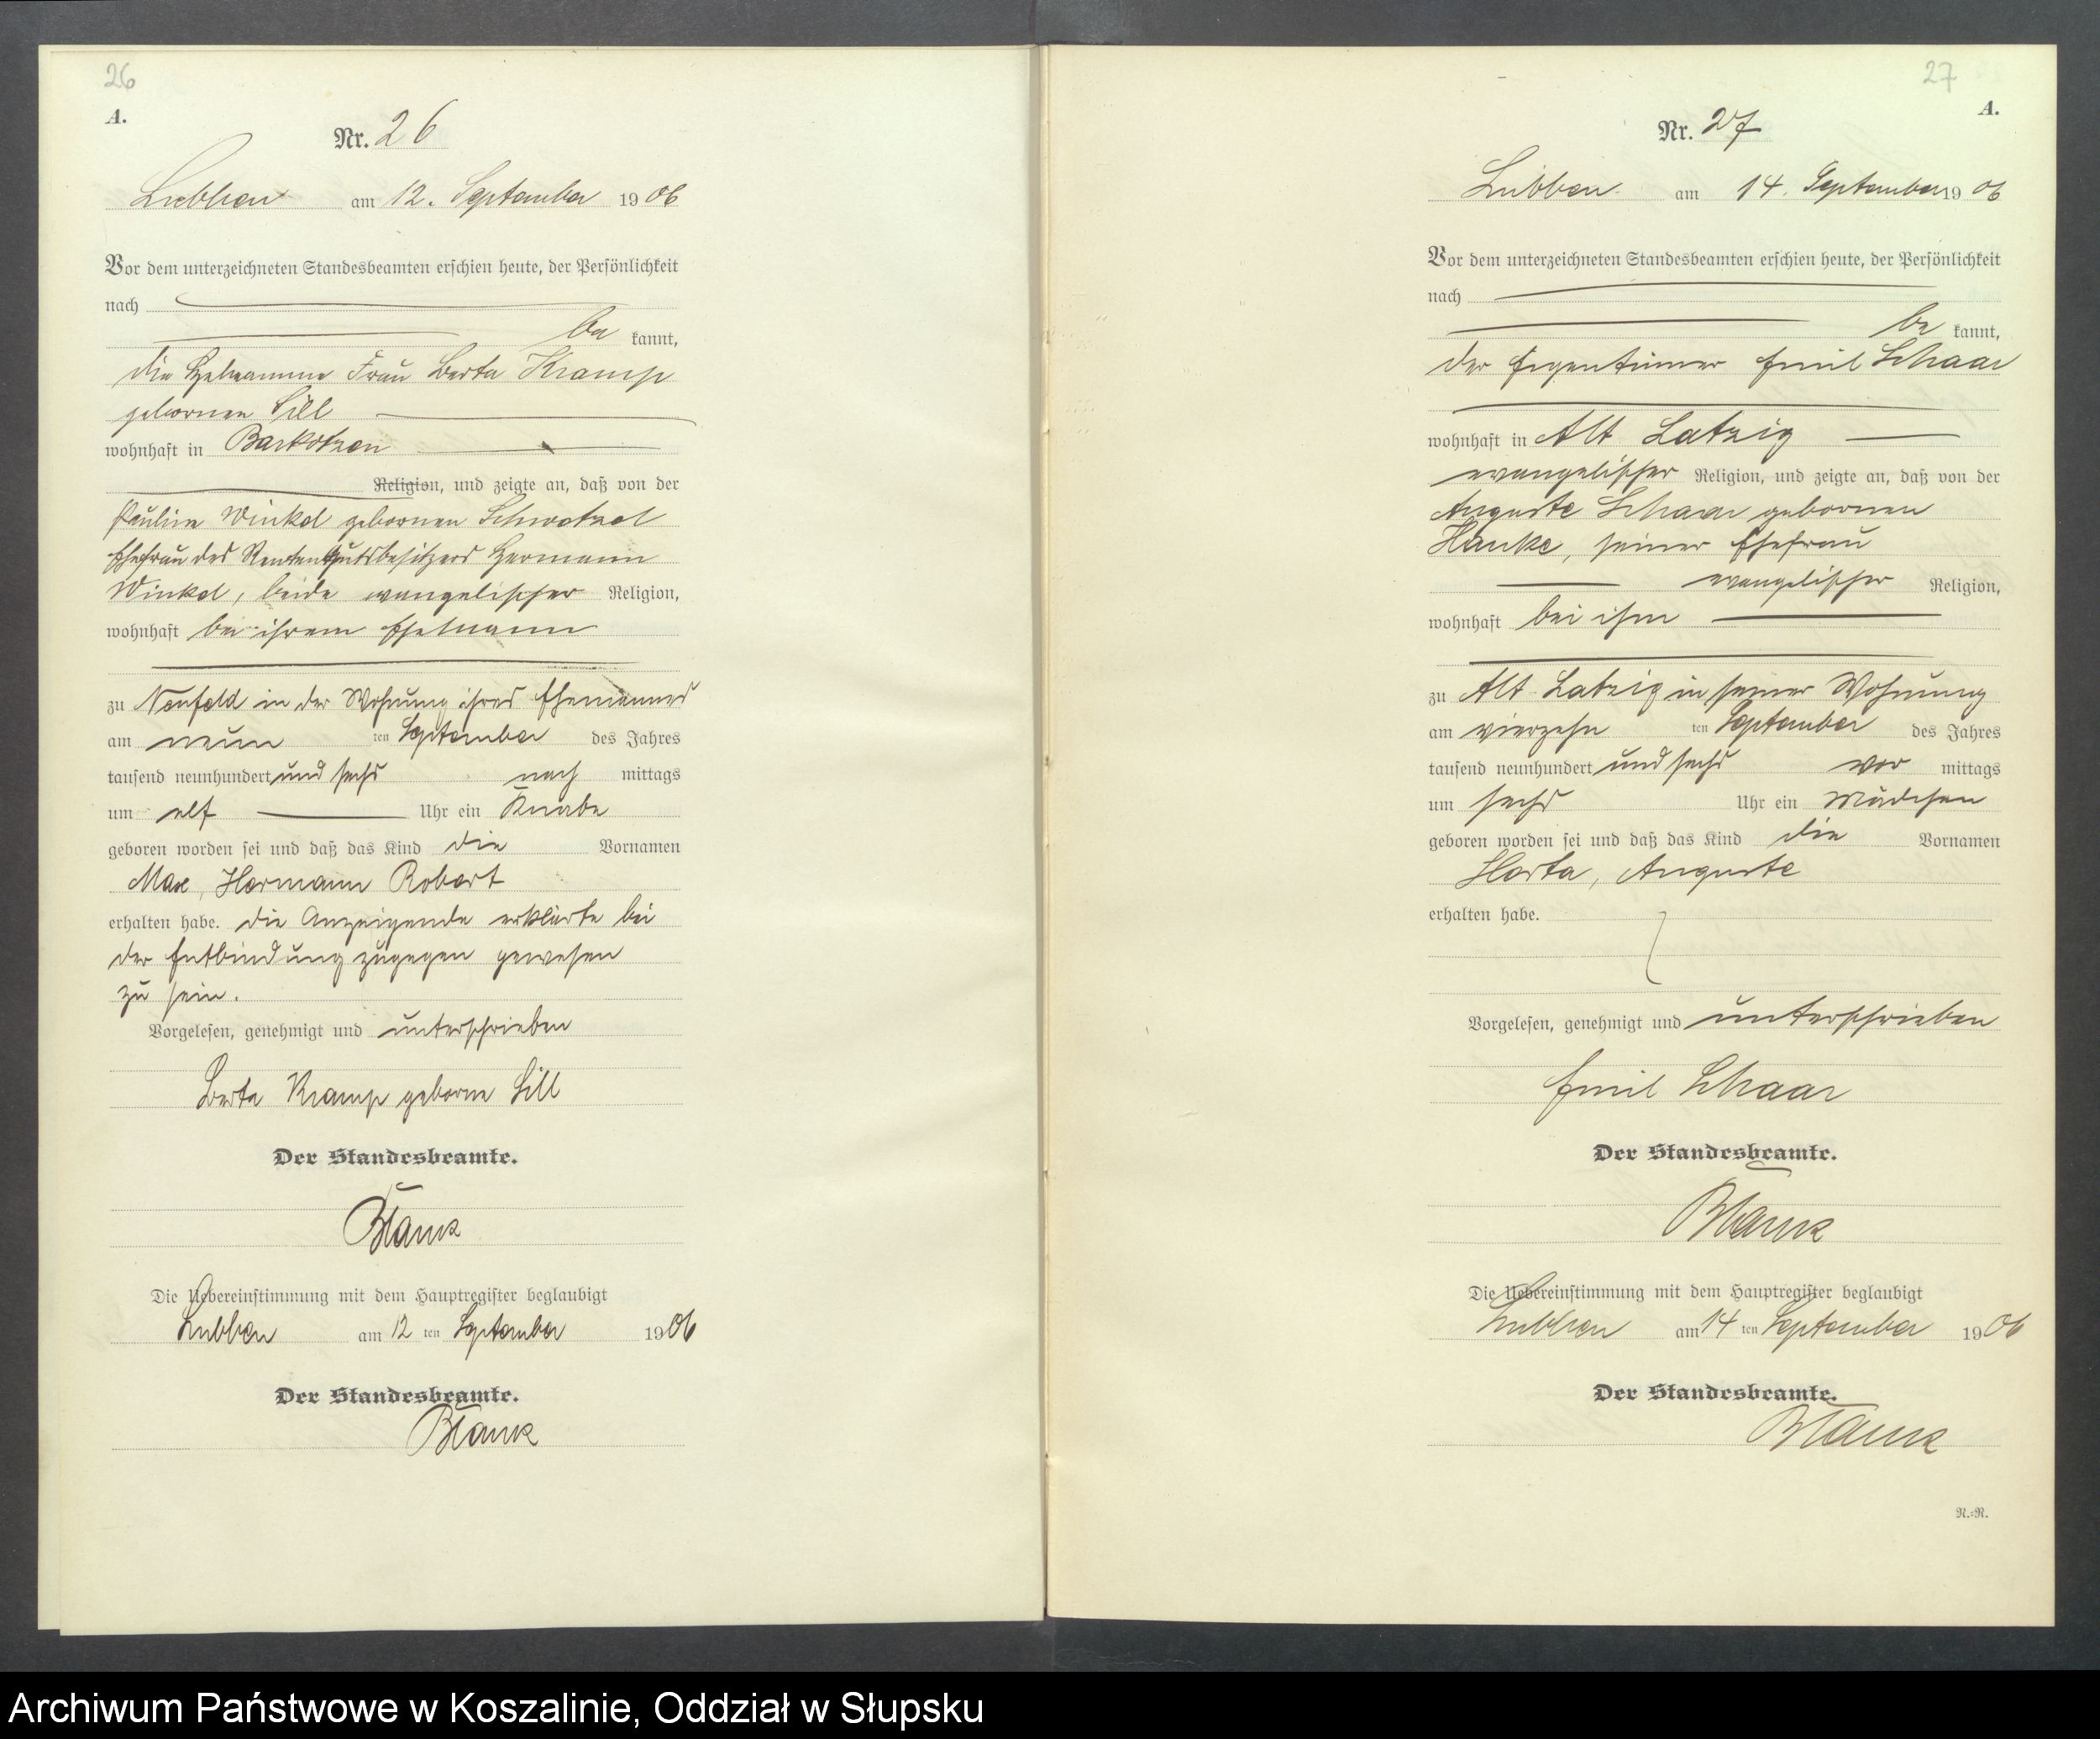 26
A.
Nr. 26
Lübben am 12. September 1906
Vor dem unterzeichneten Standesbeamten erschien heute, der Persönlichkeit
nach
be kannt,
die Hebeamme Frau Berta Kramp
geborene Sill
wohnhaft in Barkotzen
Religion, und zeigte an, daß von der
Pauline Winkel geborenen Schwotzel
Ehefrau des Rentengutsbesitzers Hermann
Winkel, beide evangelischer Religion,
wohnhaft bei ihrem Ehemann
zu Neufeld in der Wohnung ihres Ehemannes
am neun ten September des Jahres
tausend neunhundert und sechs nach mittags
um elf Uhr ein Knabe
geboren worden sei und daß das Kind die Vornamen
Max, Hermann Robert
erhalten habe. die Anzeigende erklärte bei
der Entbindung zugegen gewesen
zu sein.
Vorgelesen, genehmigt und unterschrieben
Berta Kramp geborne Sill
Der Standesbeamte.
Die Uebereinstimmung mit dem Hauptregister beglaubigt
Lübben am 12 ten September 1906
Der Standesbeamte.
27
A.
Nr. 27
Lübben am 14. September 1906
Vor dem unterzeichneten Standesbeamten erschien heute, der Persönlichkeit
nach
be kannt,
der Eigentümer Emil Schaar
wohnhaft in Alt Latzig
evangelischer Religion, und zeigte an, daß von der
Auguste Schaar geborenen
Hanke, seiner Ehefrau
evangelischer Religion,
wohnhaft bei ihm
zu Alt-Latzig in seiner Wohnung
am vierzehn ten September des Jahres
tausend neunhundert und sechs vor mittags
um sechs Uhr ein Mädchen
geboren worden sei und daß das Kind die Vornamen
Herta, Auguste
erhalten habe.
Vorgelesen, genehmigt und unterschrieben
Emil Schaar
Der Standesbeamte.
Die Uebereinstimmung mit dem Hauptregister beglaubigt
Lübben am 14 ten September 1906
Der Standesbeamte.
N.=R.
Archiwum Państwowe w Koszalinie, Oddział w Słupsku